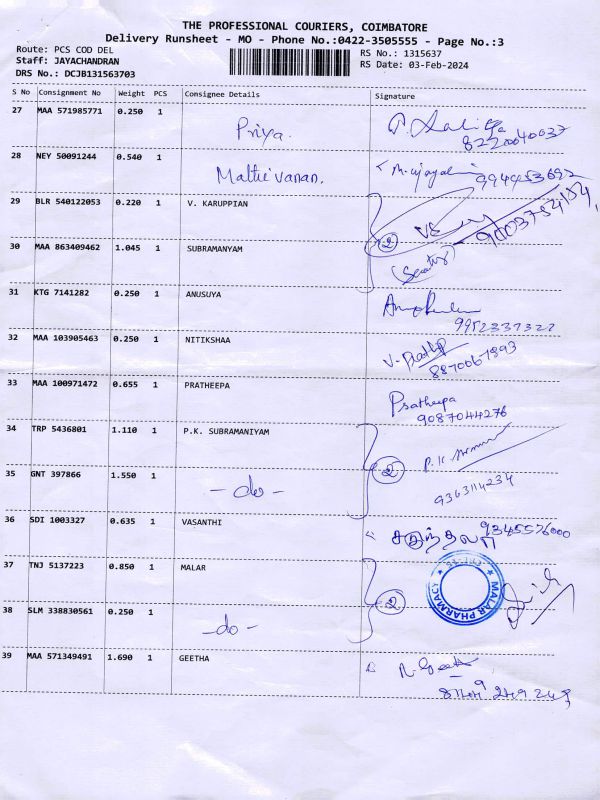 THE PROFESSIONAL COURIERS, COIMBATORE
Delivery Runsheet - MO - Phone No.:0422-3505555 - Page No.:3
Route: PCS COD DEL
Staff: JAYACHANDRAN
DRS No.: DCJB131563703
RS No.: 1315637
RS Date: 03-Feb-2024
S No Consignment No Weight PCS Consignee Details Signature
27 MAA 571985771 0.250 1 Priya.
8220040037
28 NEY 50091244 0.540 1 Mathivanan.
29 BLR 540122053 0.220 1 V. KARUPPIAN
30 MAA 863409462 1.045 1 SUBRAMANYAM
2
31 KTG 7141282 0.250 1 ANUSUYA
9952337322
32 MAA 103905463 0.250 1 NITIKSHAA
33 MAA 100971472 0.655 1 PRATHEEPA Pratheepa
9087044276
34 TRP 5436801 1.110 1 P.K. SUBRAMANIYAM
2
35 GNT 397866 1.550 1 - do -
9363114234
36 SDI 1003327 0.635 1 VASANTHI 9345526000
37 TNJ 5137223 0.850 1 MALAR
MALAR PHARMACY
2
38 SLM 338830561 0.250 1 - do -
39 MAA 571349491 1.690 1 GEETHA